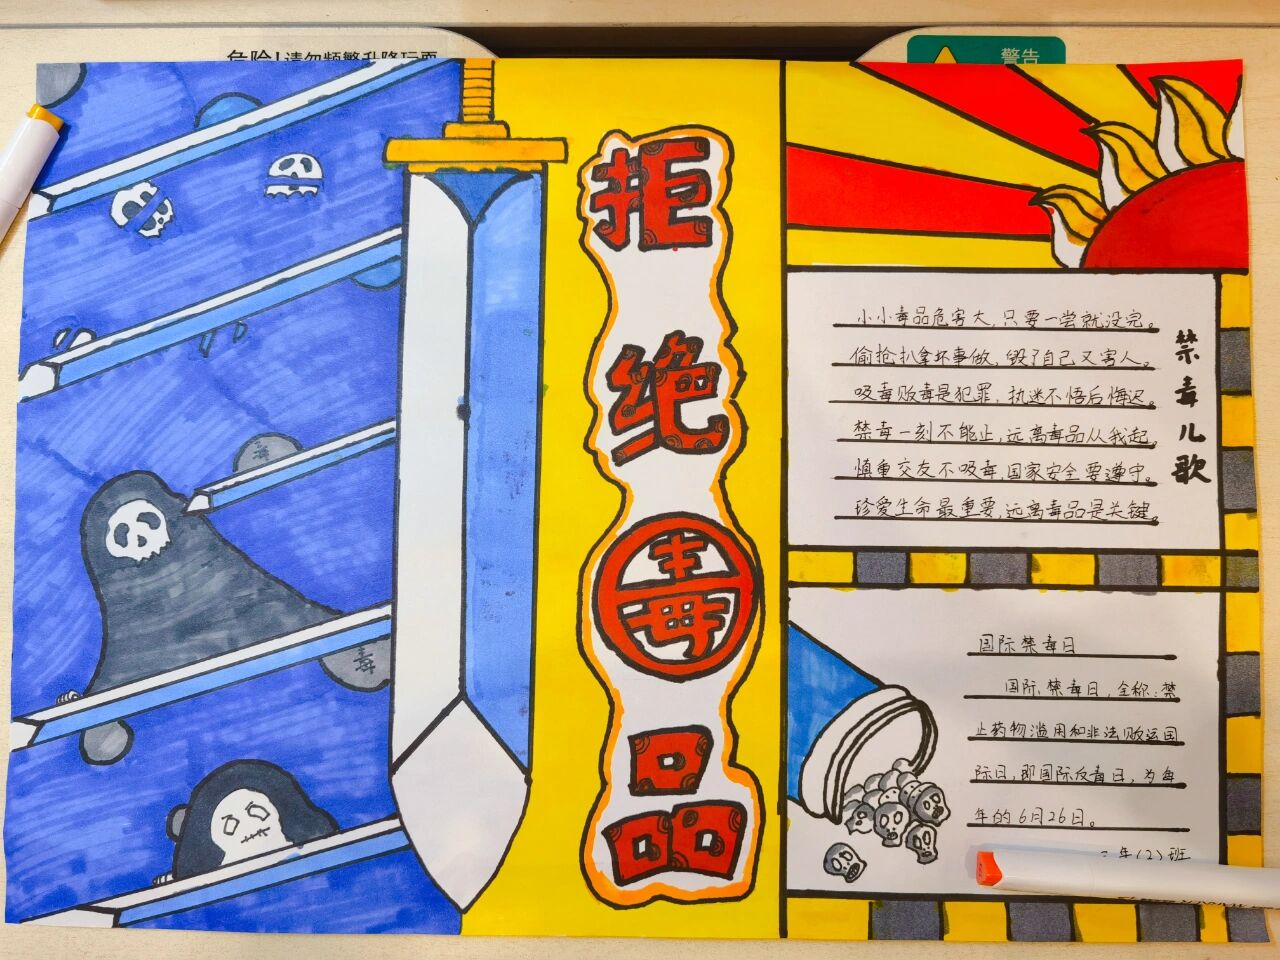 危险!请勿频繁升降玩耍
警告
拒绝毒品
禁毒儿歌
小小毒品危害大,只要一尝就没完。
偷抢扒拿坏事做,毁了自己又害人。
吸毒贩毒是犯罪,执迷不悟后悔迟。
禁毒一刻不能止,远离毒品从我起。
慎重交友不吸毒,国家安全要遵守。
珍爱生命最重要,远离毒品是关键。
毒
毒
国际禁毒日
国际禁毒日,全称:禁
止药物滥用和非法贩运国
际日,即国际反毒日,为每
年的6月26日。
年(2)班